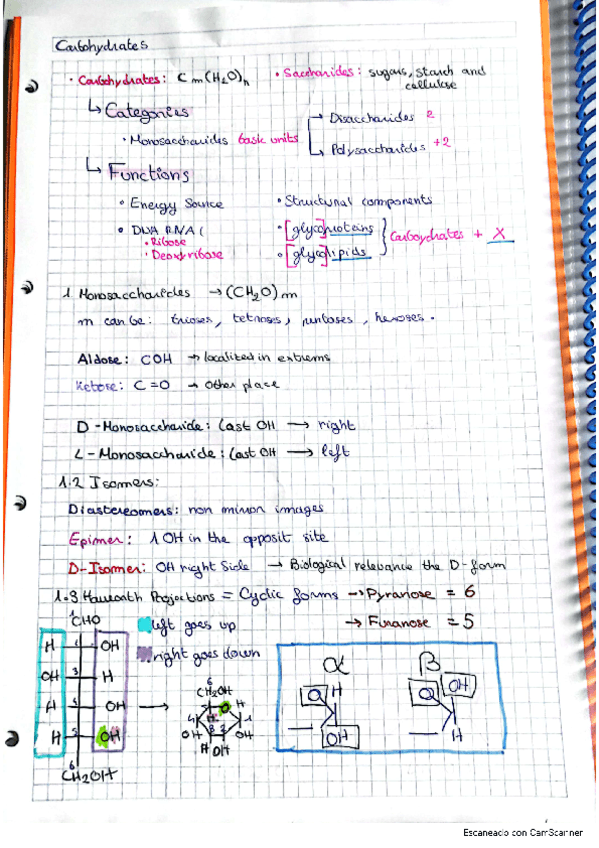 Carbohydrates
• Carbohydrates: Cm(H2O)n • Saccharides: sugars, starch and cellulose
↳ Categories
• Monosaccharides basic units → Disaccharides 2
→ Polysaccharides +2
↳ Functions
• Energy Source • Structural components
• DNA RNA ( • [glyco]proteins
• Ribose • [glyco]lipids } Carboydrates + X
• Deoxyribose
1. Monosaccharides → (CH2O)m
m can be: trioses, tetroses, pentoses, hexoses.
Aldose: COH → localized in extrems
Ketose: C=O → Other place
D-Monosaccharide: Last OH → right
L-Monosaccharide: Last OH → left
1.2 Isomers:
Diastereomers: non mirror images
Epimer: 1 OH in the opposit site
D-Isomer: OH right side → Biological relevance the D-form
1.3 Haworth Projections = Cyclic forms → Pyranose = 6
→ Furanose = 5
1CHO
left goes up
right goes down
H OH
OH 3 H
H 4 OH
H 5 OH
6
CH2OH
6
CH2OH
O H
4 1
OH 3 2 OH
H OH
α β
O H
OH
O OH
H
Escaneado con CamScanner